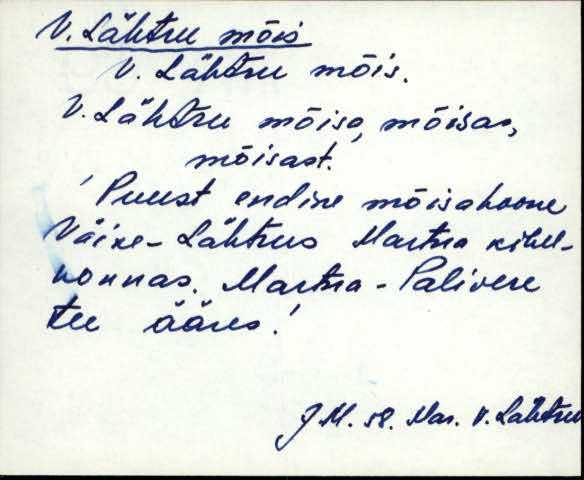 V. Lähtru mõis
V. Lähtru mõis.
V. Lähtru mõisa, mõisas,
mõisast.
'Puust endine mõisahoone
Väike-Lähtrus Martna kihel-
konnas. Martna-Palivere
tee ääres.'
J.M. 58. Mar. V. Lähtru